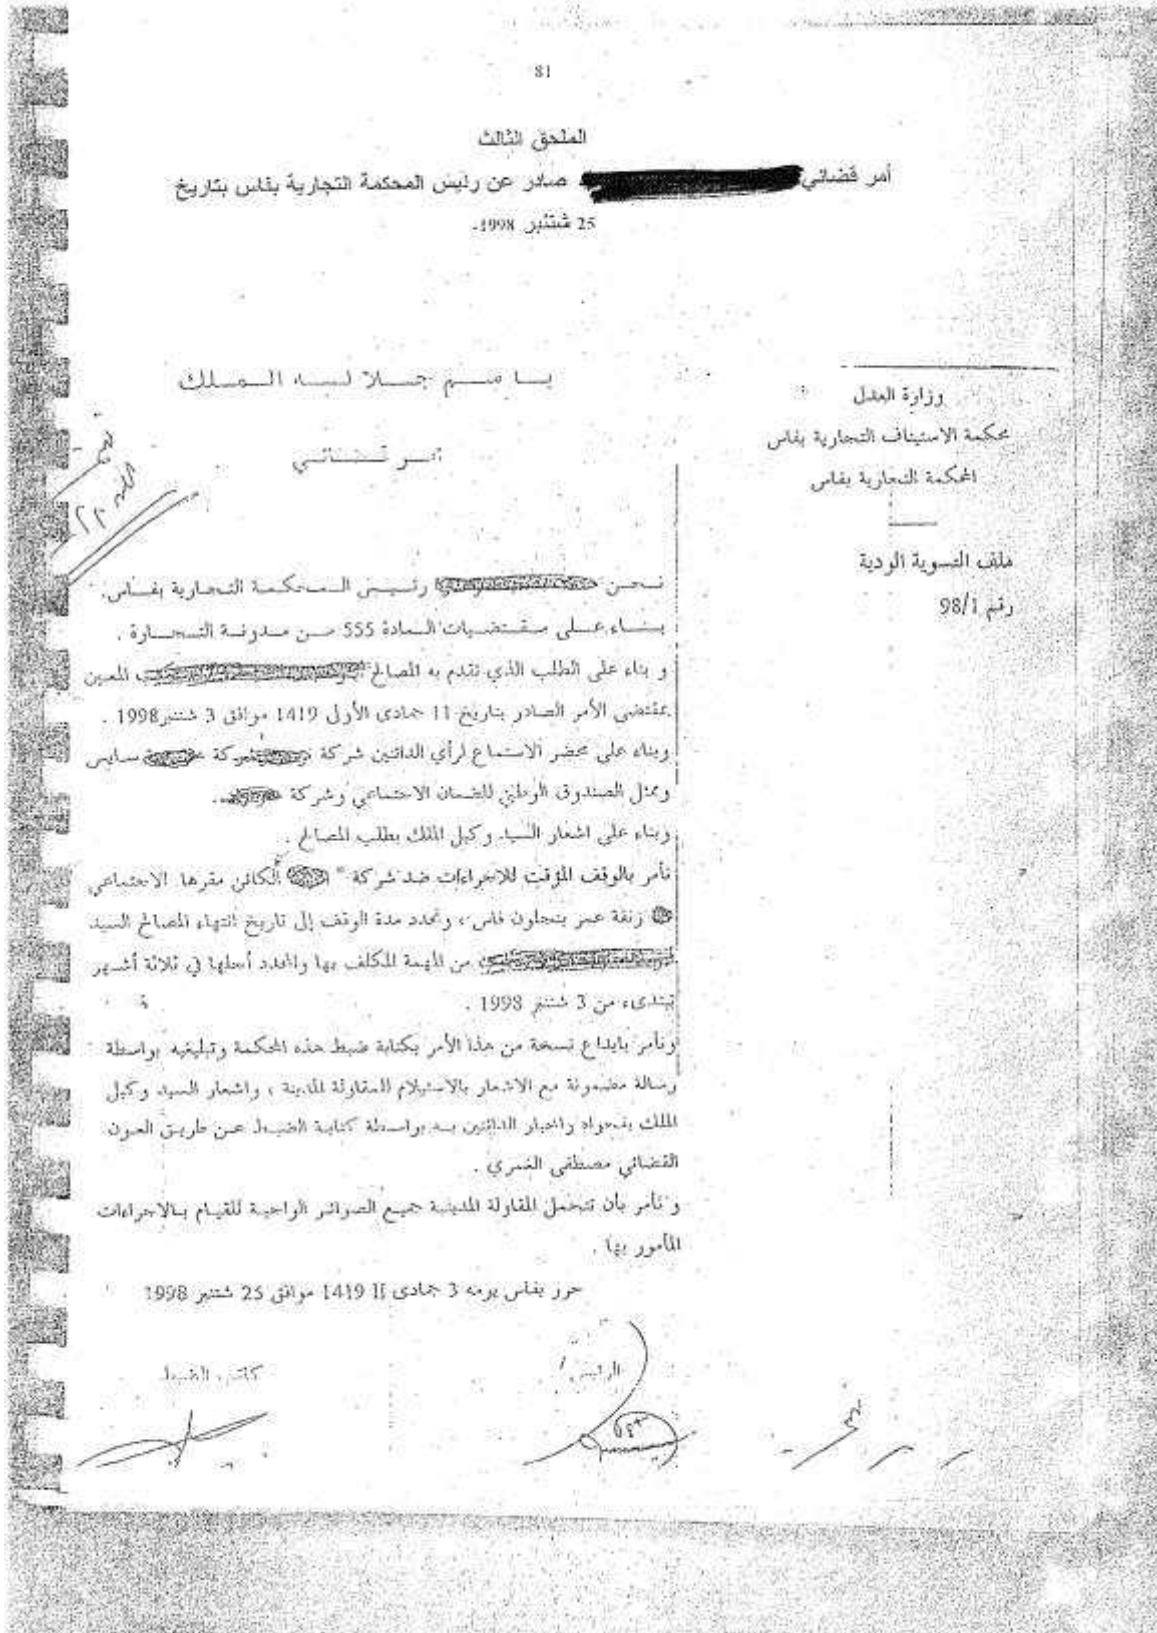 81
الملحق الثالث
أمر قضائي صادر عن رئيس المحكمة التجارية بفاس بتاريخ
25 شتنبر 1998.
باسم جلالة الملك
أمر قضائي
وزارة العدل
محكمة الاستيناف التجارية بفاس
المحكمة التجارية بفاس
ملف التسوية الودية
رقم 98/1
نحن رئيس المحكمة التجارية بفاس.
بناء على مقتضيات المادة 555 من مدونة التجارة .
و بناء على الطلب الذي تقدم به المصالح المعين
بمقتضى الأمر الصادر بتاريخ 11 جمادى الأول 1419 موافق 3 شتنبر 1998 .
وبناء على محضر الاستماع لرأي الدائنين شركة شركة سايس
وممثل الصندوق الوطني للضمان الاجتماعي وشركة .
وبناء على اشعار السيد وكيل الملك بطلب المصالح .
نأمر بالوقف المؤقت للاجراءات ضد شركة " الكائن مقرها الاجتماعي
زنقة عمر بنجلون فاس ، ونحدد مدة الوقف إلى تاريخ انتهاء المصالح السيد
من المهمة المكلف بها والمحدد أجلها في ثلاثة أشهر
تبتدىء من 3 شتنبر 1998 .
ونأمر بايداع نسخة من هذا الأمر بكتابة ضبط هذه المحكمة وتبليغه بواسطة
رسالة مضمونة مع الاشعار بالاستيلام للمقاولة المدينة ، واشعار السيد وكيل
الملك بفحواه واخبار الدائنين به بواسطة كتابة الضبط عن طريق العون
القضائي مصطفى الغمري .
و نأمر بأن تتحمل المقاولة المدينة جميع الصوائر الواجبة للقيام بالاجراءات
المأمور بها .
حرر بفاس يومه 3 جمادى II 1419 موافق 25 شتنبر 1998
الرئيس
كاتب الضبط